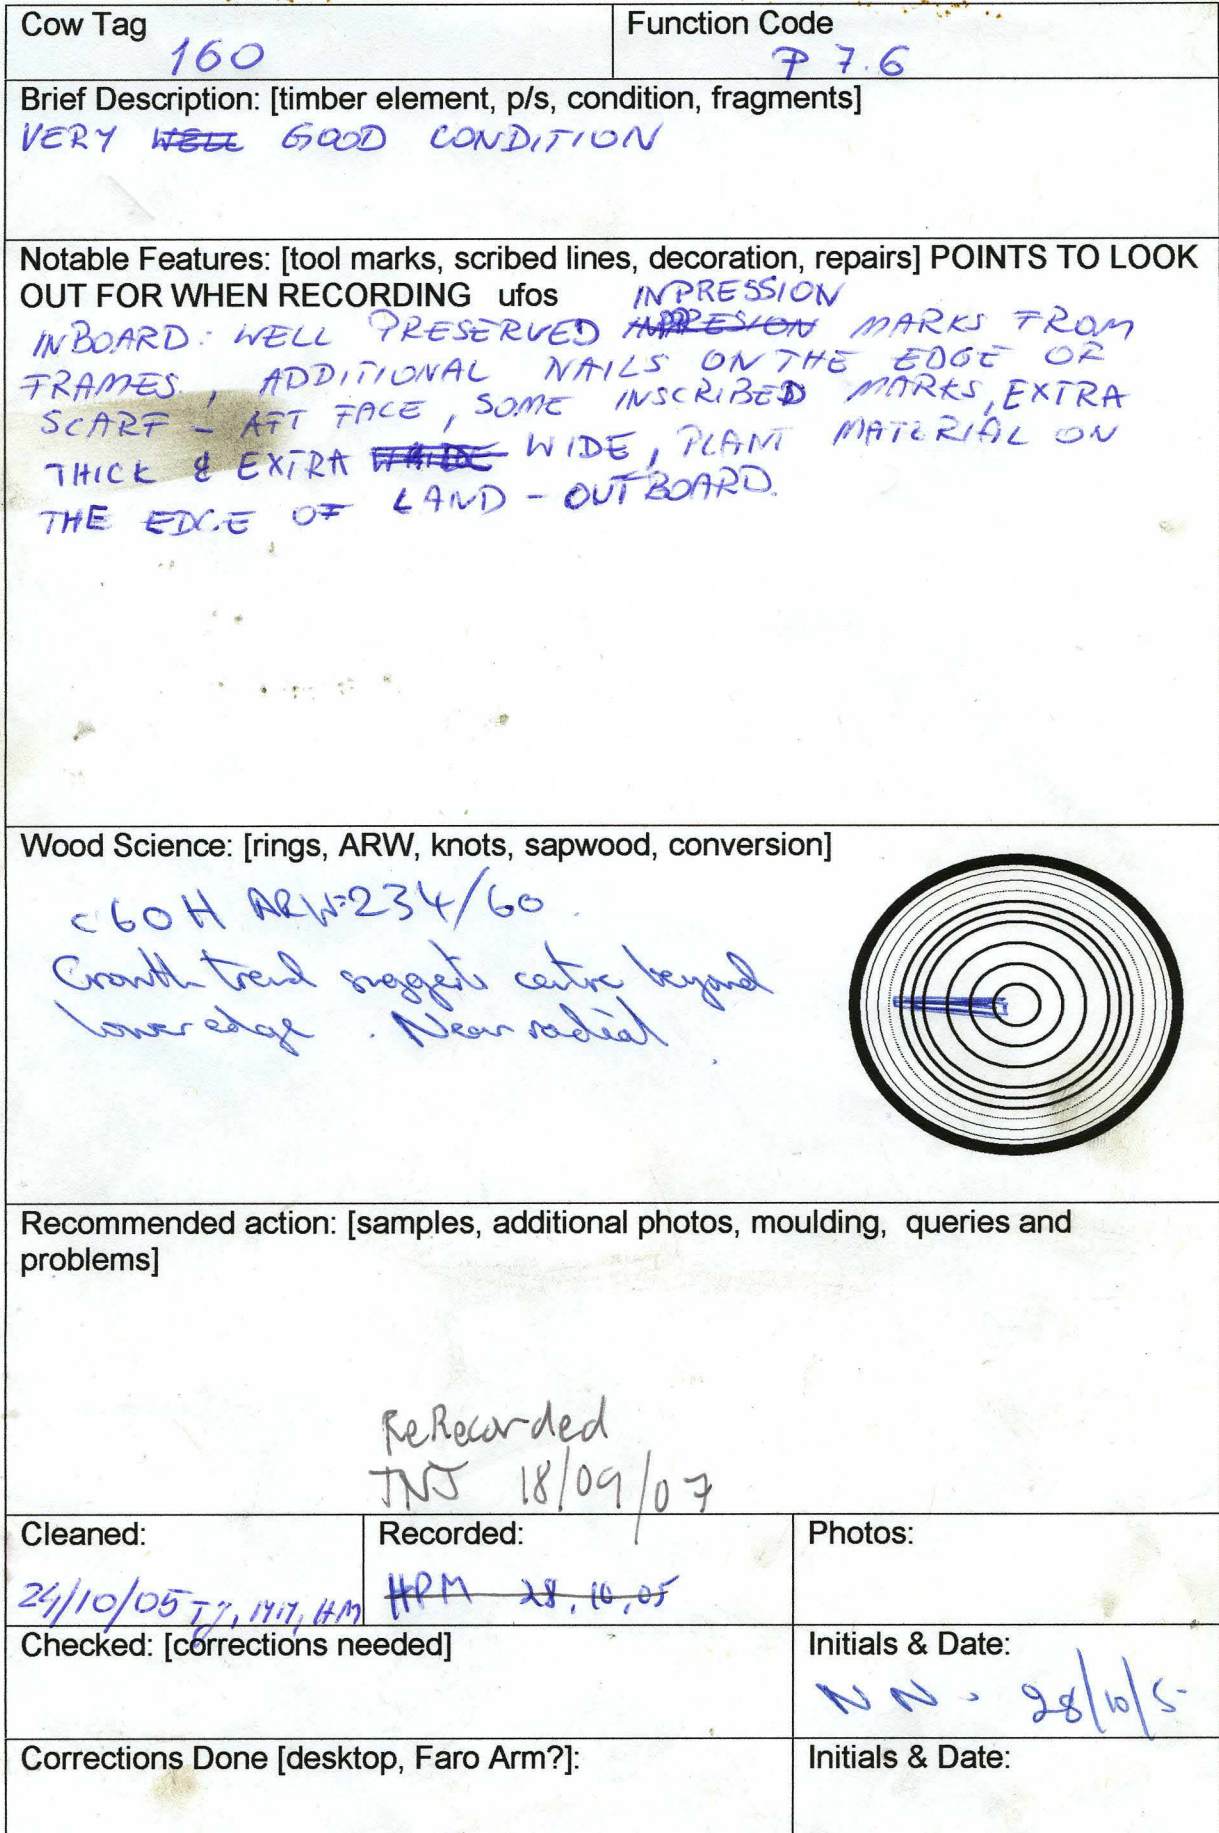 Cow Tag
160
Function Code
P 7.6
Brief Description: [timber element, p/s, condition, fragments]
VERY WELL GOOD CONDITION
Notable Features: [tool marks, scribed lines, decoration, repairs] POINTS TO LOOK
OUT FOR WHEN RECORDING ufos INPRESSION
INBOARD: WELL PRESERVED MARKS FROM
FRAMES, ADDITIONAL NAILS ON THE EDGE OF
SCARF - AFT FACE, SOME INSCRIBED MARKS, EXTRA
THICK & EXTRA WIDE, PLANT MATERIAL ON
THE EDGE OF LAND - OUTBOARD.
Wood Science: [rings, ARW, knots, sapwood, conversion]
c60H ARW=234/60.
Growth trend suggests centre beyond
lower edge. Near radial.
Recommended action: [samples, additional photos, moulding, queries and
problems]
ReRecorded
TNJ 18/09/07
Cleaned:
24/10/05
Recorded:
HPM 28.10.05
Photos:
Checked: [corrections needed]
Initials & Date:
NN. 28/10/5
Corrections Done [desktop, Faro Arm?]:
Initials & Date: